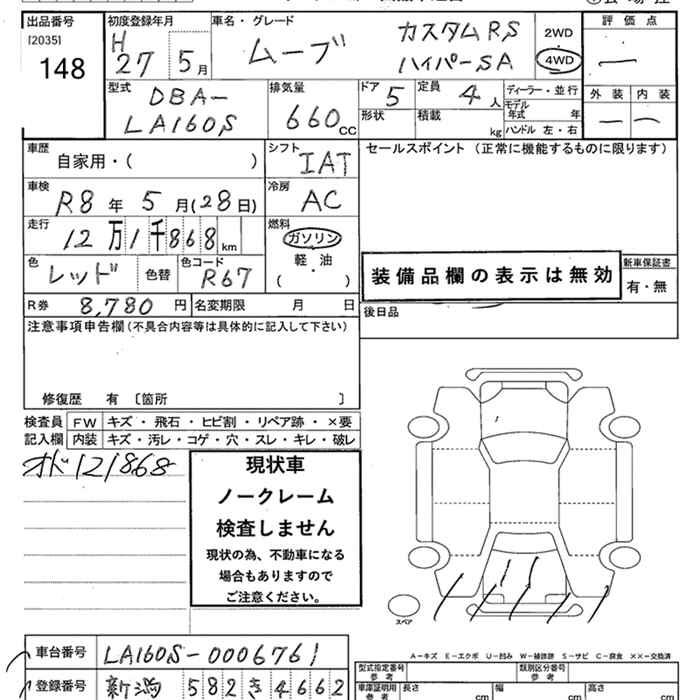 出品番号
[2035]
148
初度登録年月
H
27 5月
車名・グレード
ムーブ
カスタムRS
ハイパーSA
2WD
4WD
評価点
—
外装 内装
— —
型式
DBA-
LA160S
排気量
660cc
ドア 5
定員 4人
形状
積載 kg
ディーラー・並行
モデル年式 年
ハンドル 左・右
車歴
自家用・( )
シフト
IAT
セールスポイント (正常に機能するものに限ります)
車検
R8年 5月(28日)
冷房
AC
走行
12万1千868km
燃料
ガソリン
軽油
・
( )
色
レッド 色替
色コード
R67
装備品欄の表示は無効
新車保証書
有・無
R券 8,780円
名変期限 月 日
後日品
注意事項申告欄(不具合内容等は具体的に記入して下さい)
修復歴 有 〔箇所 〕
検査員 FW キズ・飛石・ヒビ割・リペア跡・×要
記入欄 内装 キズ・汚レ・コゲ・穴・スレ・キレ・破レ
オド121868
現状車
ノークレーム
検査しません
現状の為、不動車になる
場合もありますので
ご注意ください。
スペア
A-キズ E-エクボ U-凹み W-補修跡 S-サビ C-腐食 ××-交換済
車台番号 LA160S-0006761
登録番号 新潟 582き4662
型式指定番号
参考
類別区分番号
参考
車庫証明用
参考
長さ cm
幅 cm
高さ cm